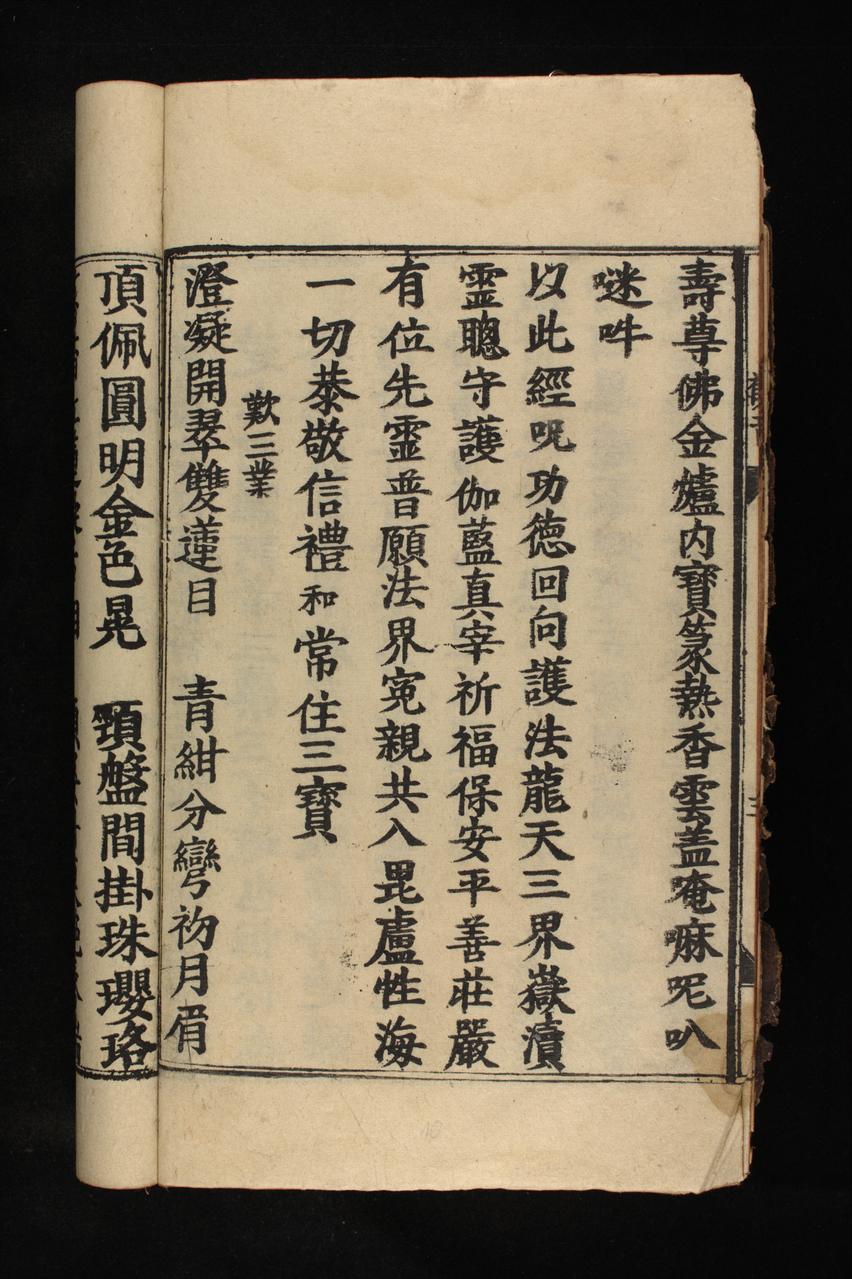 壽尊佛金爐内寶篆熱香雲盖唵嘛呢叭
𠺗吽
以此經呪功德回向護法龍天三界嶽瀆
靈聰守護伽藍真宰祈福保安平善莊嚴
有位先靈普願法界寃親共入毘盧性海
一切恭敬信禮和常住三寶
歎三業
澄凝開翠雙蓮目 青紺分彎初月眉
頂佩圓明金色晃 頸盤間掛珠瓔珞